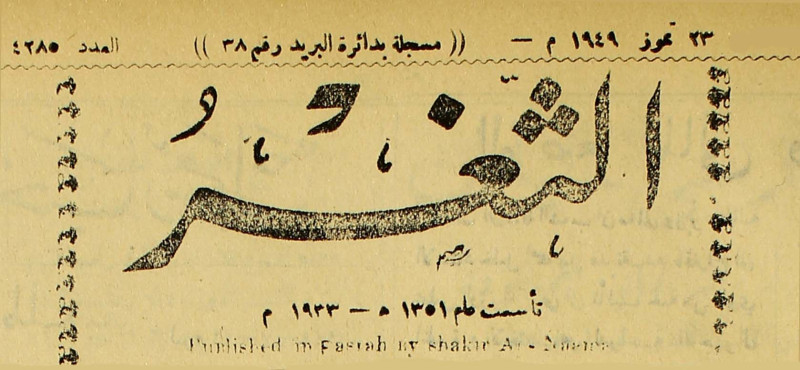 ٢٣ تموز ١٩٤٩ م — (( مسجلة بدائرة البريد رقم ٣٨ )) العدد ٤٢٨٥
الثغر
تأسست عام ١٣٥١ ه — ١٩٣٣ م
Published in Basrah by shakir Al - Niema